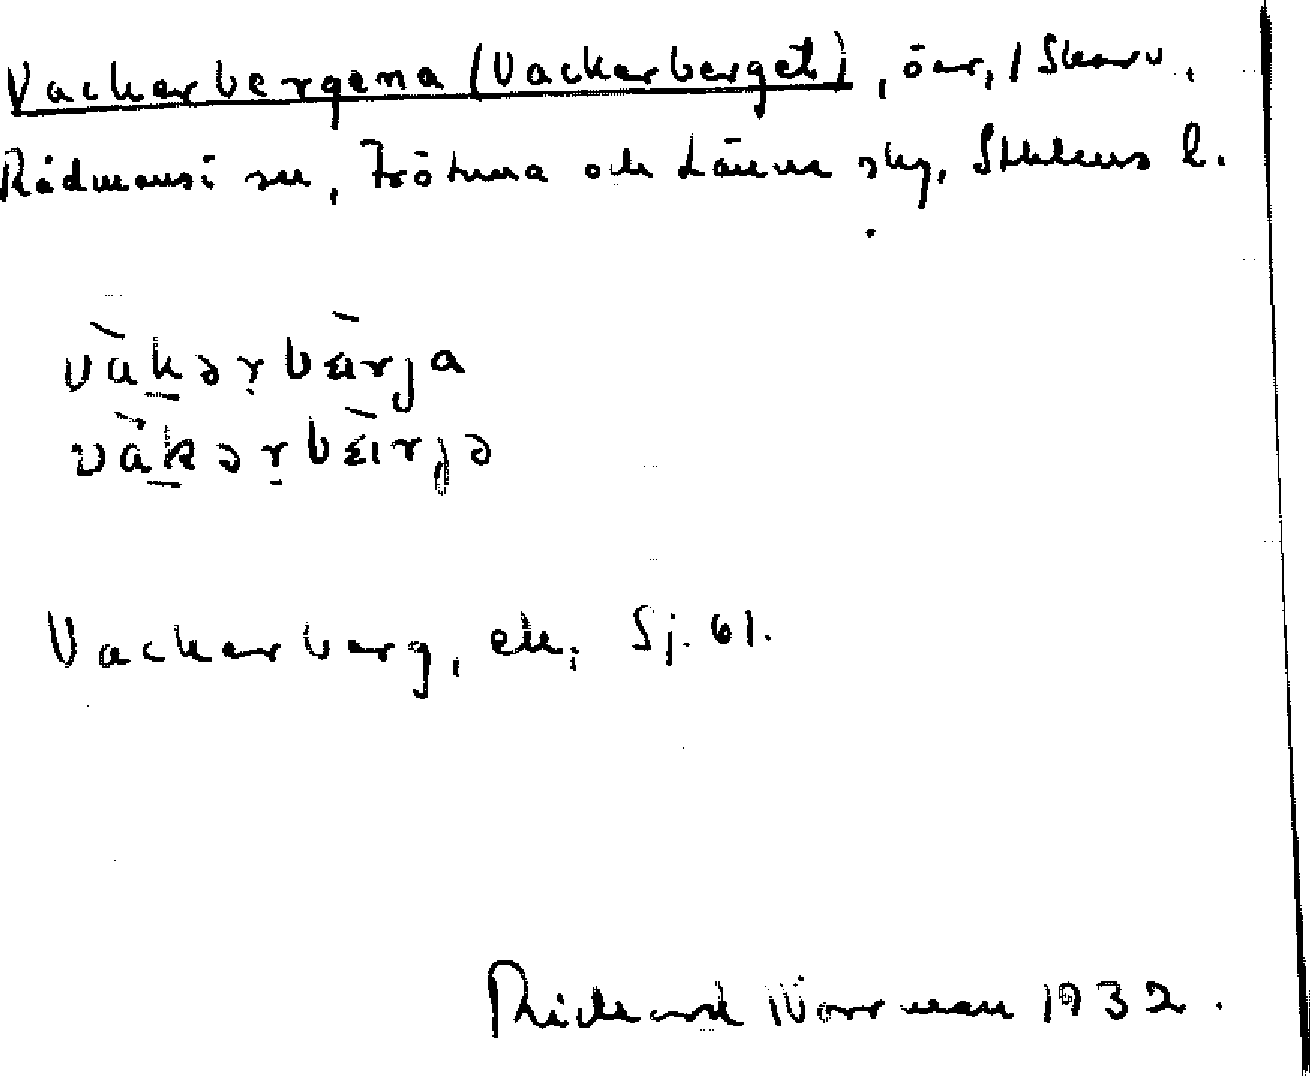 Vackerbergena (Vackerberget), öar, / Skarv,
Rådmansö sn, Frötuna och Länna skg, Sthlms l.
vàkər̥bä̀rja
vàkər̥bä̀rjə
Vackerberg, ek; Sj. 61.
Richard Norrman 1932.